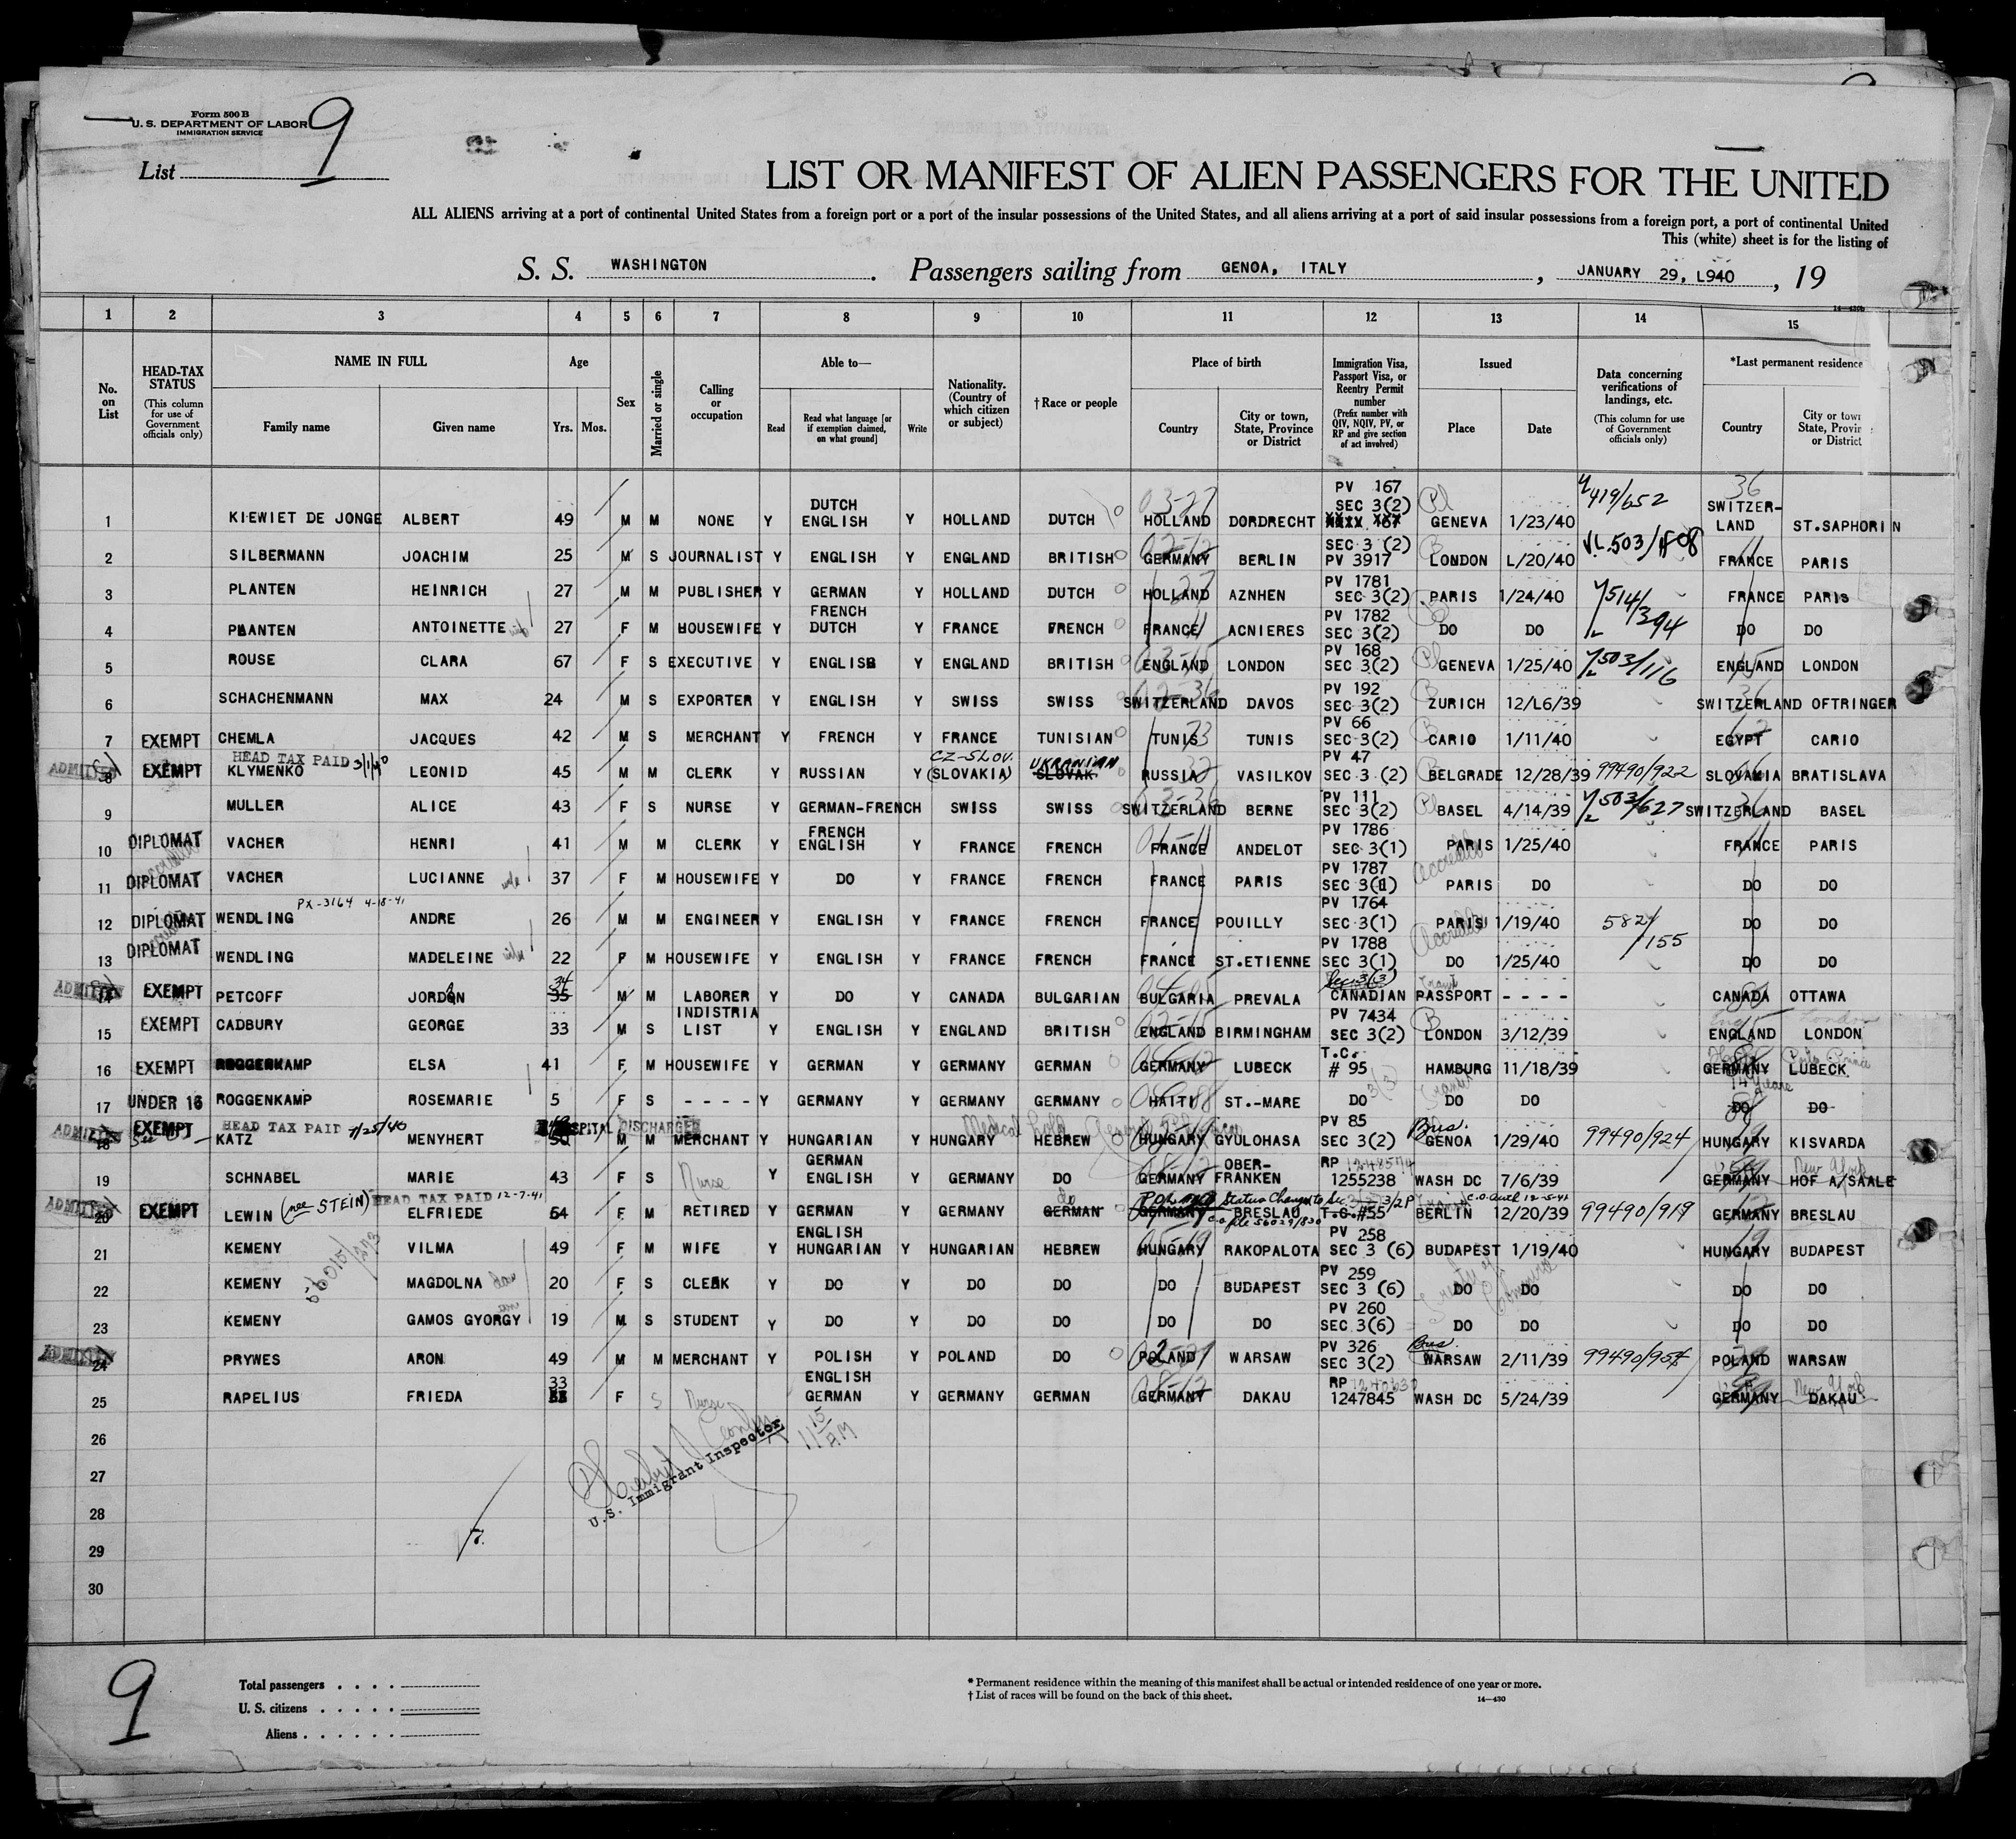 Form 500 B
U. S. DEPARTMENT OF LABOR
IMMIGRATION SERVICE
9
List
LIST OR MANIFEST OF ALIEN PASSENGERS FOR THE UNITED
ALL ALIENS arriving at a port of continental United States from a foreign port or a port of the insular possessions of the United States, and all aliens arriving at a port of said insular possessions from a foreign port, a port of continental United
This (white) sheet is for the listing of
S. S. WASHINGTON . Passengers sailing from GENOA, ITALY , JANUARY 29, L940 , 19
14—430b
1 2 3 4 5 6 7 8 9 10 11 12 13 14 15
No. on List
HEAD-TAX STATUS (This column for use of Government officials only)
NAME IN FULL
Family name Given name
Age
Yrs. Mos.
Sex
Married or single
Calling or occupation
Able to—
Read Read what language [or if exemption claimed, on what ground] Write
Nationality. (Country of which citizen or subject)
† Race or people
Place of birth
Country City or town, State, Province or District
Immigration Visa, Passport Visa, or Reentry Permit number (Prefix number with QIV, NQIV, PV, or RP and give section of act involved)
Issued
Place Date
Data concerning verifications of landings, etc. (This column for use of Government officials only)
*Last permanent residence
Country City or town State, Provin or District
1 KIEWIET DE JONGE ALBERT 49 M M NONE Y DUTCH ENGLISH Y HOLLAND DUTCH 03-27 HOLLAND DORDRECHT PV 167 SEC 3(2) GENEVA 1/23/40 419/652 36 SWITZER-LAND ST.SAPHORIN
2 SILBERMANN JOACHIM 25 M S JOURNALIST Y ENGLISH Y ENGLAND BRITISH GERMANY BERLIN SEC 3 (2) PV 3917 LONDON L/20/40 FRANCE PARIS
3 PLANTEN HEINRICH 27 M M PUBLISHER Y GERMAN Y HOLLAND DUTCH 27 HOLLAND AZNHEN PV 1781 SEC 3(2) PARIS 1/24/40 514/394 FRANCE PARIS
4 PLANTEN ANTOINETTE wife 27 F M HOUSEWIFE Y FRENCH DUTCH Y FRANCE FRENCH FRANCE ACNIERES PV 1782 SEC 3(2) DO DO DO DO
5 ROUSE CLARA 67 F S EXECUTIVE Y ENGLISH Y ENGLAND BRITISH ENGLAND LONDON PV 168 SEC 3(2) GENEVA 1/25/40 503/116 ENGLAND LONDON
6 SCHACHENMANN MAX 24 M S EXPORTER Y ENGLISH Y SWISS SWISS SWITZERLAND DAVOS PV 192 SEC 3(2) ZURICH 12/L6/39 SWITZERLAND OFTRINGER
7 EXEMPT CHEMLA JACQUES 42 M S MERCHANT Y FRENCH Y FRANCE TUNISIAN TUNIS TUNIS PV 66 SEC 3(2) CARIO 1/11/40 EGYPT CARIO
ADMITTED 8 EXEMPT HEAD TAX PAID 3/1/40 KLYMENKO LEONID 45 M M CLERK Y RUSSIAN Y CZ-SLOV. (SLOVAKIA) UKRANIAN SLOVAK RUSSIA VASILKOV PV 47 SEC 3 (2) BELGRADE 12/28/39 99490/922 SLOVAKIA BRATISLAVA
9 MULLER ALICE 43 F S NURSE Y GERMAN-FRENCH SWISS SWISS SWITZERLAND BERNE PV 111 SEC 3(2) BASEL 4/14/39 503/627 SWITZERLAND BASEL
10 DIPLOMAT VACHER HENRI 41 M M CLERK Y FRENCH ENGLISH Y FRANCE FRENCH FRANCE ANDELOT PV 1786 SEC 3(1) PARIS 1/25/40 FRANCE PARIS
11 DIPLOMAT VACHER LUCIANNE wife 37 F M HOUSEWIFE Y DO Y FRANCE FRENCH FRANCE PARIS PV 1787 SEC 3(1) Accredited PARIS DO DO DO
12 DIPLOMAT PX-3164 4-18-41 WENDLING ANDRE 26 M M ENGINEER Y ENGLISH Y FRANCE FRENCH FRANCE POUILLY PV 1764 SEC 3(1) PARIS 1/19/40 582/155 DO DO
13 DIPLOMAT WENDLING MADELEINE wife 22 F M HOUSEWIFE Y ENGLISH Y FRANCE FRENCH FRANCE ST.ETIENNE PV 1788 SEC 3(1) Accredited DO 1/25/40 DO DO
ADMITTED 14 EXEMPT PETCOFF JORDAN 34 35 M M LABORER Y DO Y CANADA BULGARIAN BULGARIA PREVALA Sec 3(3) CANADIAN PASSPORT - - - - CANADA OTTAWA
15 EXEMPT CADBURY GEORGE 33 M S INDISTRIA LIST Y ENGLISH Y ENGLAND BRITISH ENGLAND BIRMINGHAM PV 7434 SEC 3(2) LONDON 3/12/39 ENGLAND LONDON
16 EXEMPT ROGGENKAMP ELSA 41 F M HOUSEWIFE Y GERMAN Y GERMANY GERMAN GERMANY LUBECK T.C. # 95 HAMBURG 11/18/39 GERMANY LUBECK
17 UNDER 16 ROGGENKAMP ROSEMARIE 5 F S - - - - Y GERMANY Y GERMANY GERMANY HAITI ST.-MARE DO 3(3) Transit DO DO DO DO
ADMITTED 18 EXEMPT HEAD TAX PAID 7/25/40 KATZ MENYHERT 50 HOSPITAL DISCHARGED M M MERCHANT Y HUNGARIAN Y HUNGARY Medical hold HEBREW HUNGARY GYULOHASA PV 85 SEC 3(2) Bus. GENOA 1/29/40 99490/924 HUNGARY KISVARDA
19 SCHNABEL MARIE 43 F S Nurse Y GERMAN ENGLISH Y GERMANY DO GERMANY OBER-FRANKEN RP 1248574 1255238 WASH DC 7/6/39 GERMANY New York HOF A/SAALE
ADMITTED 20 EXEMPT LEWIN (nee STEIN) HEAD TAX PAID 12-7-41 ELFRIEDE 54 F M RETIRED Y GERMAN Y GERMANY do GERMAN Poland GERMANY BRESLAU Status Changed to Sec 3/2P C.O. file 56029/830 T.C.#55 C.O. auth 12-5-41 BERLIN 12/20/39 99490/919 GERMANY BRESLAU
21 KEMENY VILMA 49 F M WIFE Y ENGLISH HUNGARIAN Y HUNGARIAN HEBREW HUNGARY RAKOPALOTA PV 258 SEC 3 (6) BUDAPEST 1/19/40 HUNGARY BUDAPEST
56015/273
22 KEMENY MAGDOLNA dau 20 F S CLERK Y DO Y DO DO DO BUDAPEST PV 259 SEC 3 (6) DO DO DO DO
23 KEMENY GAMOS GYORGY son 19 M S STUDENT Y DO Y DO DO DO DO PV 260 SEC 3(6) DO DO DO DO
ADMITTED 24 PRYWES ARON 49 M M MERCHANT Y POLISH Y POLAND DO POLAND WARSAW PV 326 SEC 3(2) Bus. WARSAW 2/11/39 99490/954 POLAND WARSAW
25 RAPELIUS FRIEDA 33 F S Nurse ENGLISH GERMAN Y GERMANY GERMAN GERMANY DAKAU RP 1247845 WASH DC 5/24/39 GERMANY New York DAKAU
26
27
28
29
30
U.S. Immigrant Inspector
11 15 AM
7.
9
Total passengers . . . .
U. S. citizens . . . . .
Aliens . . . . . .
* Permanent residence within the meaning of this manifest shall be actual or intended residence of one year or more.
† List of races will be found on the back of this sheet.
14—430